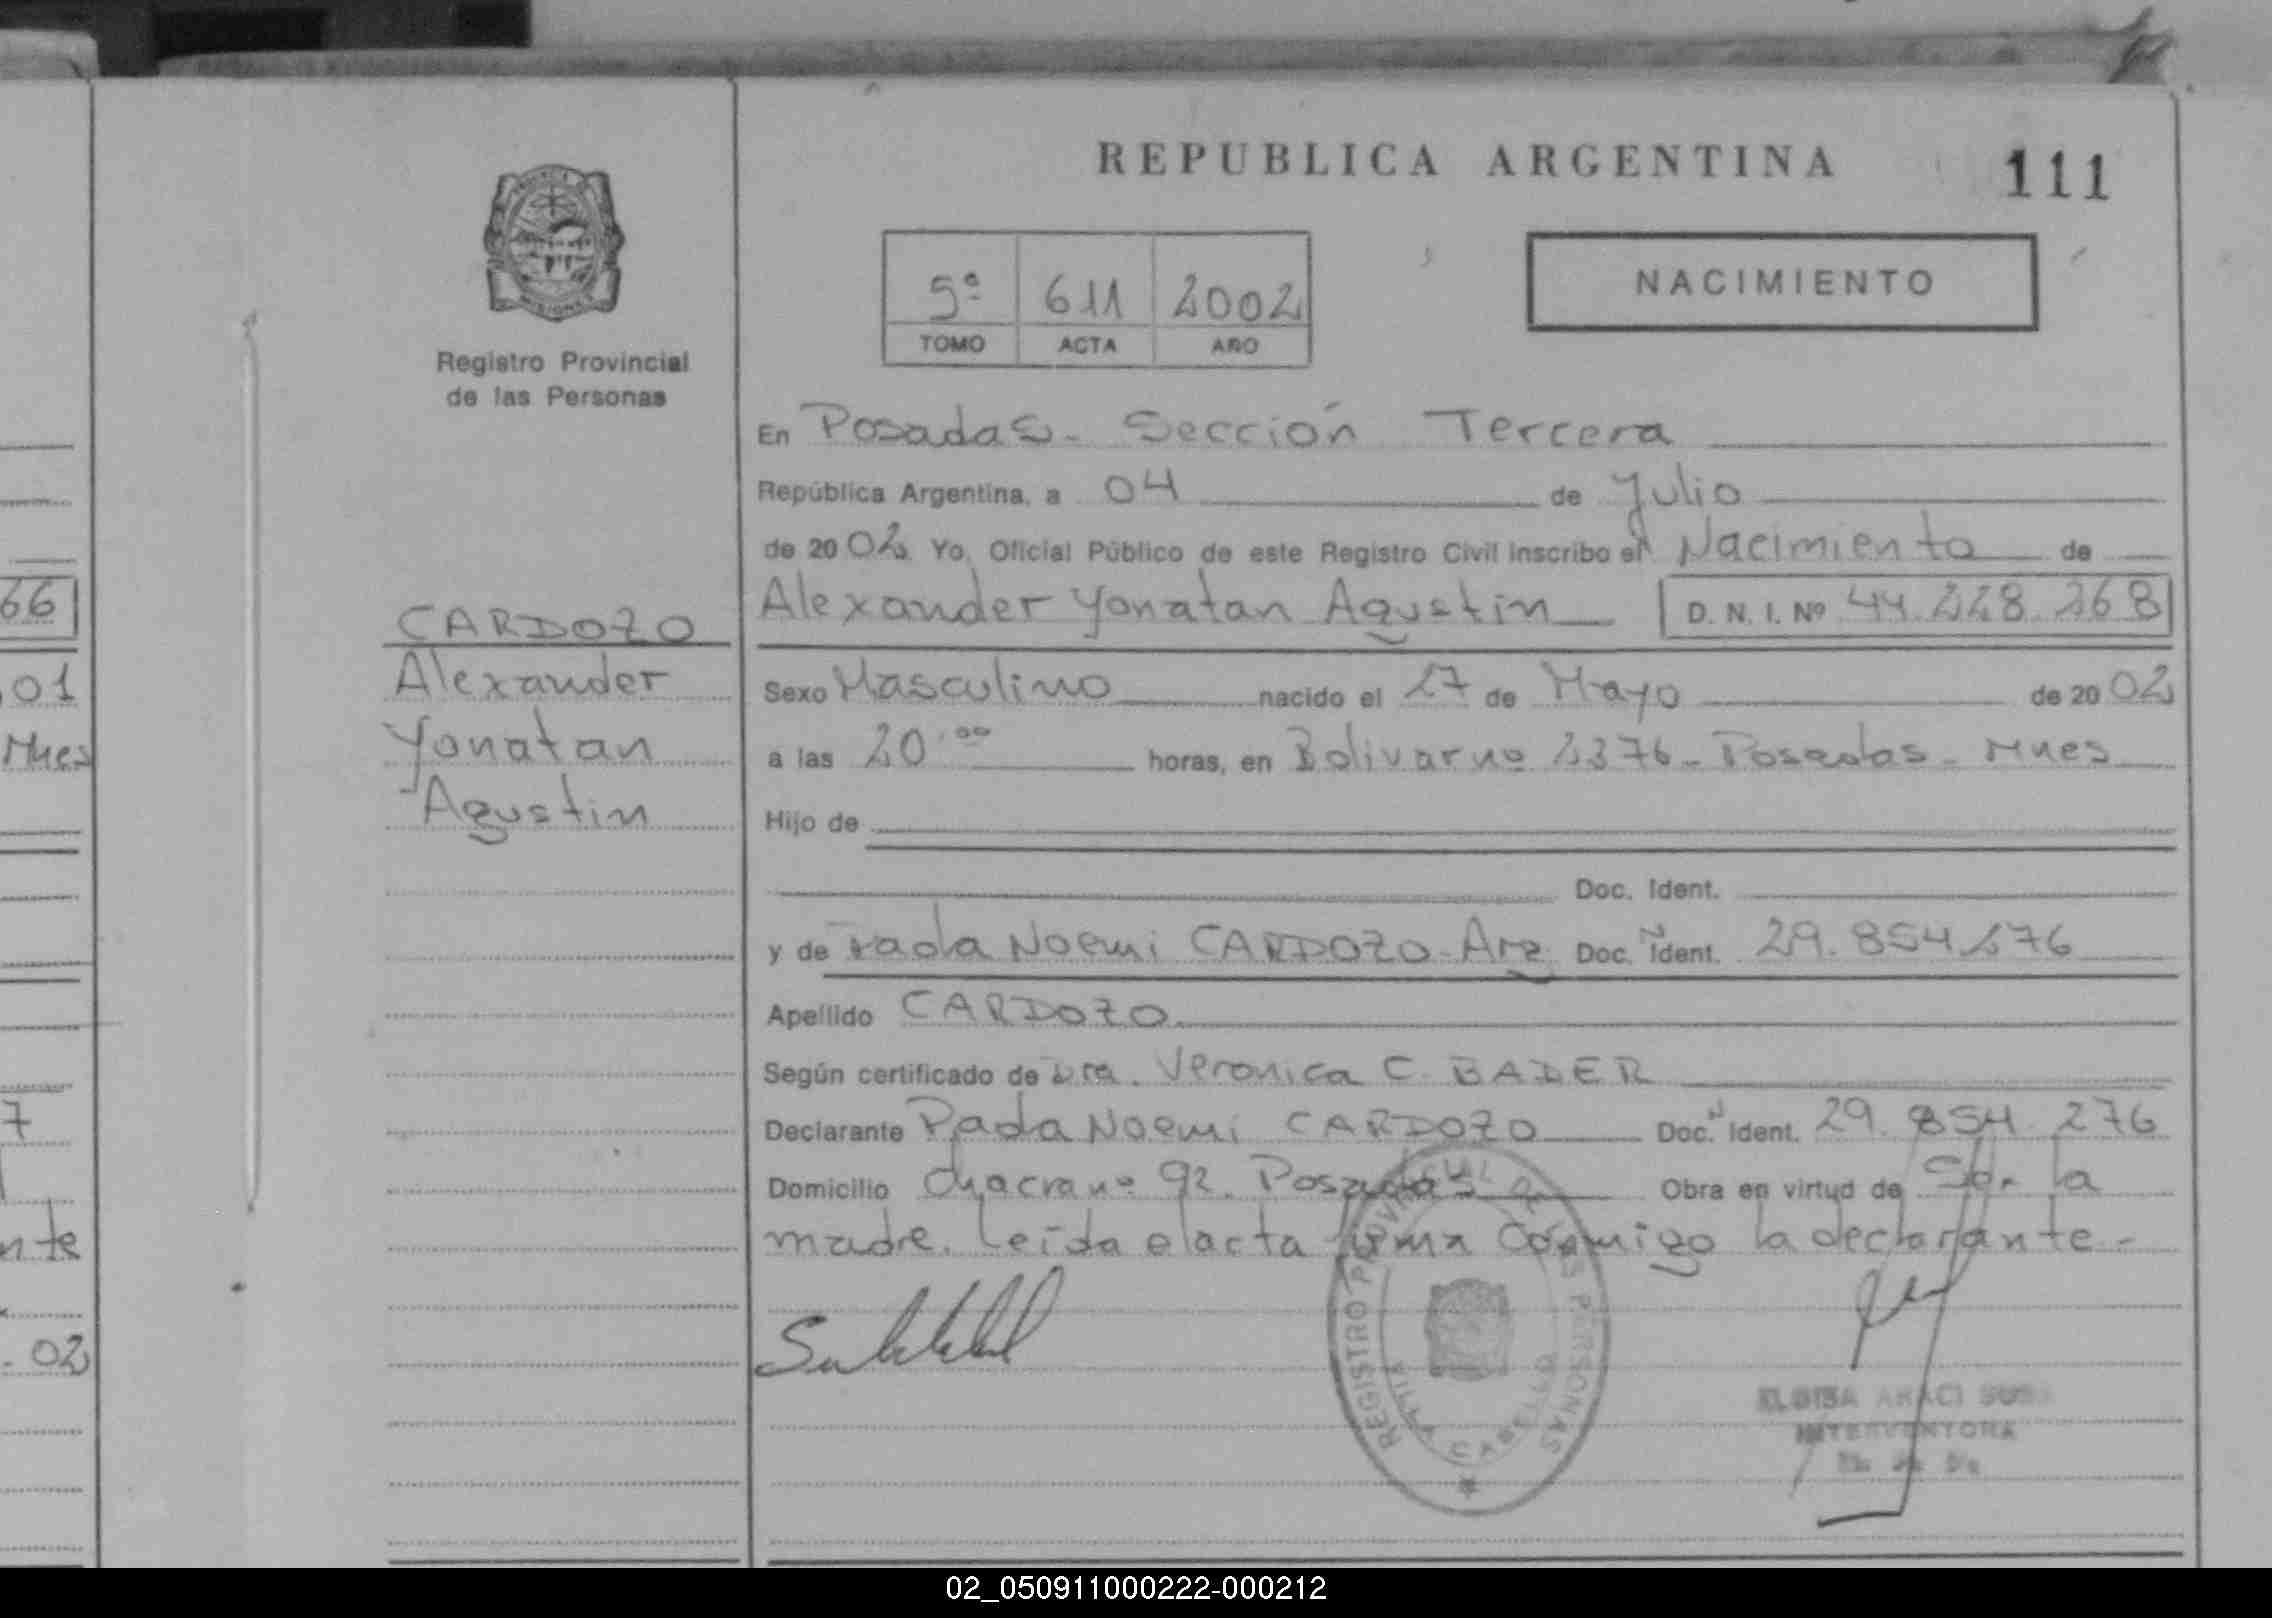 REPUBLICA ARGENTINA
111
5º 611 2002
TOMO ACTA AÑO
NACIMIENTO
Registro Provincial
de las Personas
En Posadas - Sección Tercera
República Argentina, a 04 de Julio
de 2002 Yo, Oficial Público de este Registro Civil inscribo el Nacimiento de
Alexander Yonatan Agustin D. N. I. Nº 44.228.268
CARDOZO
Alexander
Yonatan
Agustin
Sexo Masculino nacido el 27 de Mayo de 2002
a las 20.00 horas, en Bolivar nº 2376 - Posadas - Mnes
Hijo de
Doc. Ident.
y de Noemi CARDOZO - Arg Doc. Ident. 29.854.276
Apellido CARDOZO
Según certificado de Dra. Veronica C. BADER
Declarante Noemi CARDOZO Doc. Ident. 29.854.276
Domicilio Chacra nº 92. Posadas Obra en virtud de Ser la
madre. Leída el acta firma conmigo la declarante -
REGISTRO PROVINCIAL DE LAS PERSONAS
VILLA CABELLO
ELOISA ARACI
INTERVENTORA
66
01
Mnes
7
nte
02
02_050911000222-000212